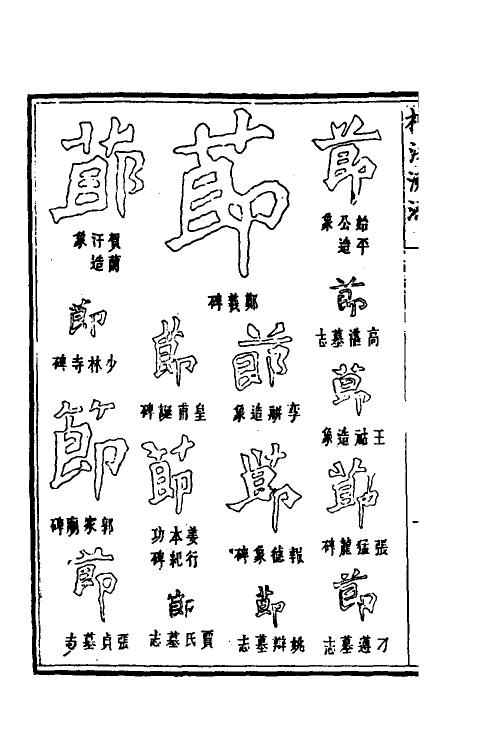 莭
始平公造象
莭
高湛墓志
莭
王祐造象
莭
張猛龍碑
莭
刁遵墓志
莭
鄭羲碑
莭
李聯造象
莭
報德象碑
莭
姚辯墓志
莭
皇甫誕碑
莭
姜行本紀功碑
節
賈氏墓志
莭
賀蘭汗造象
莭
少林寺碑
節
郭家廟碑
莭
張貞墓志